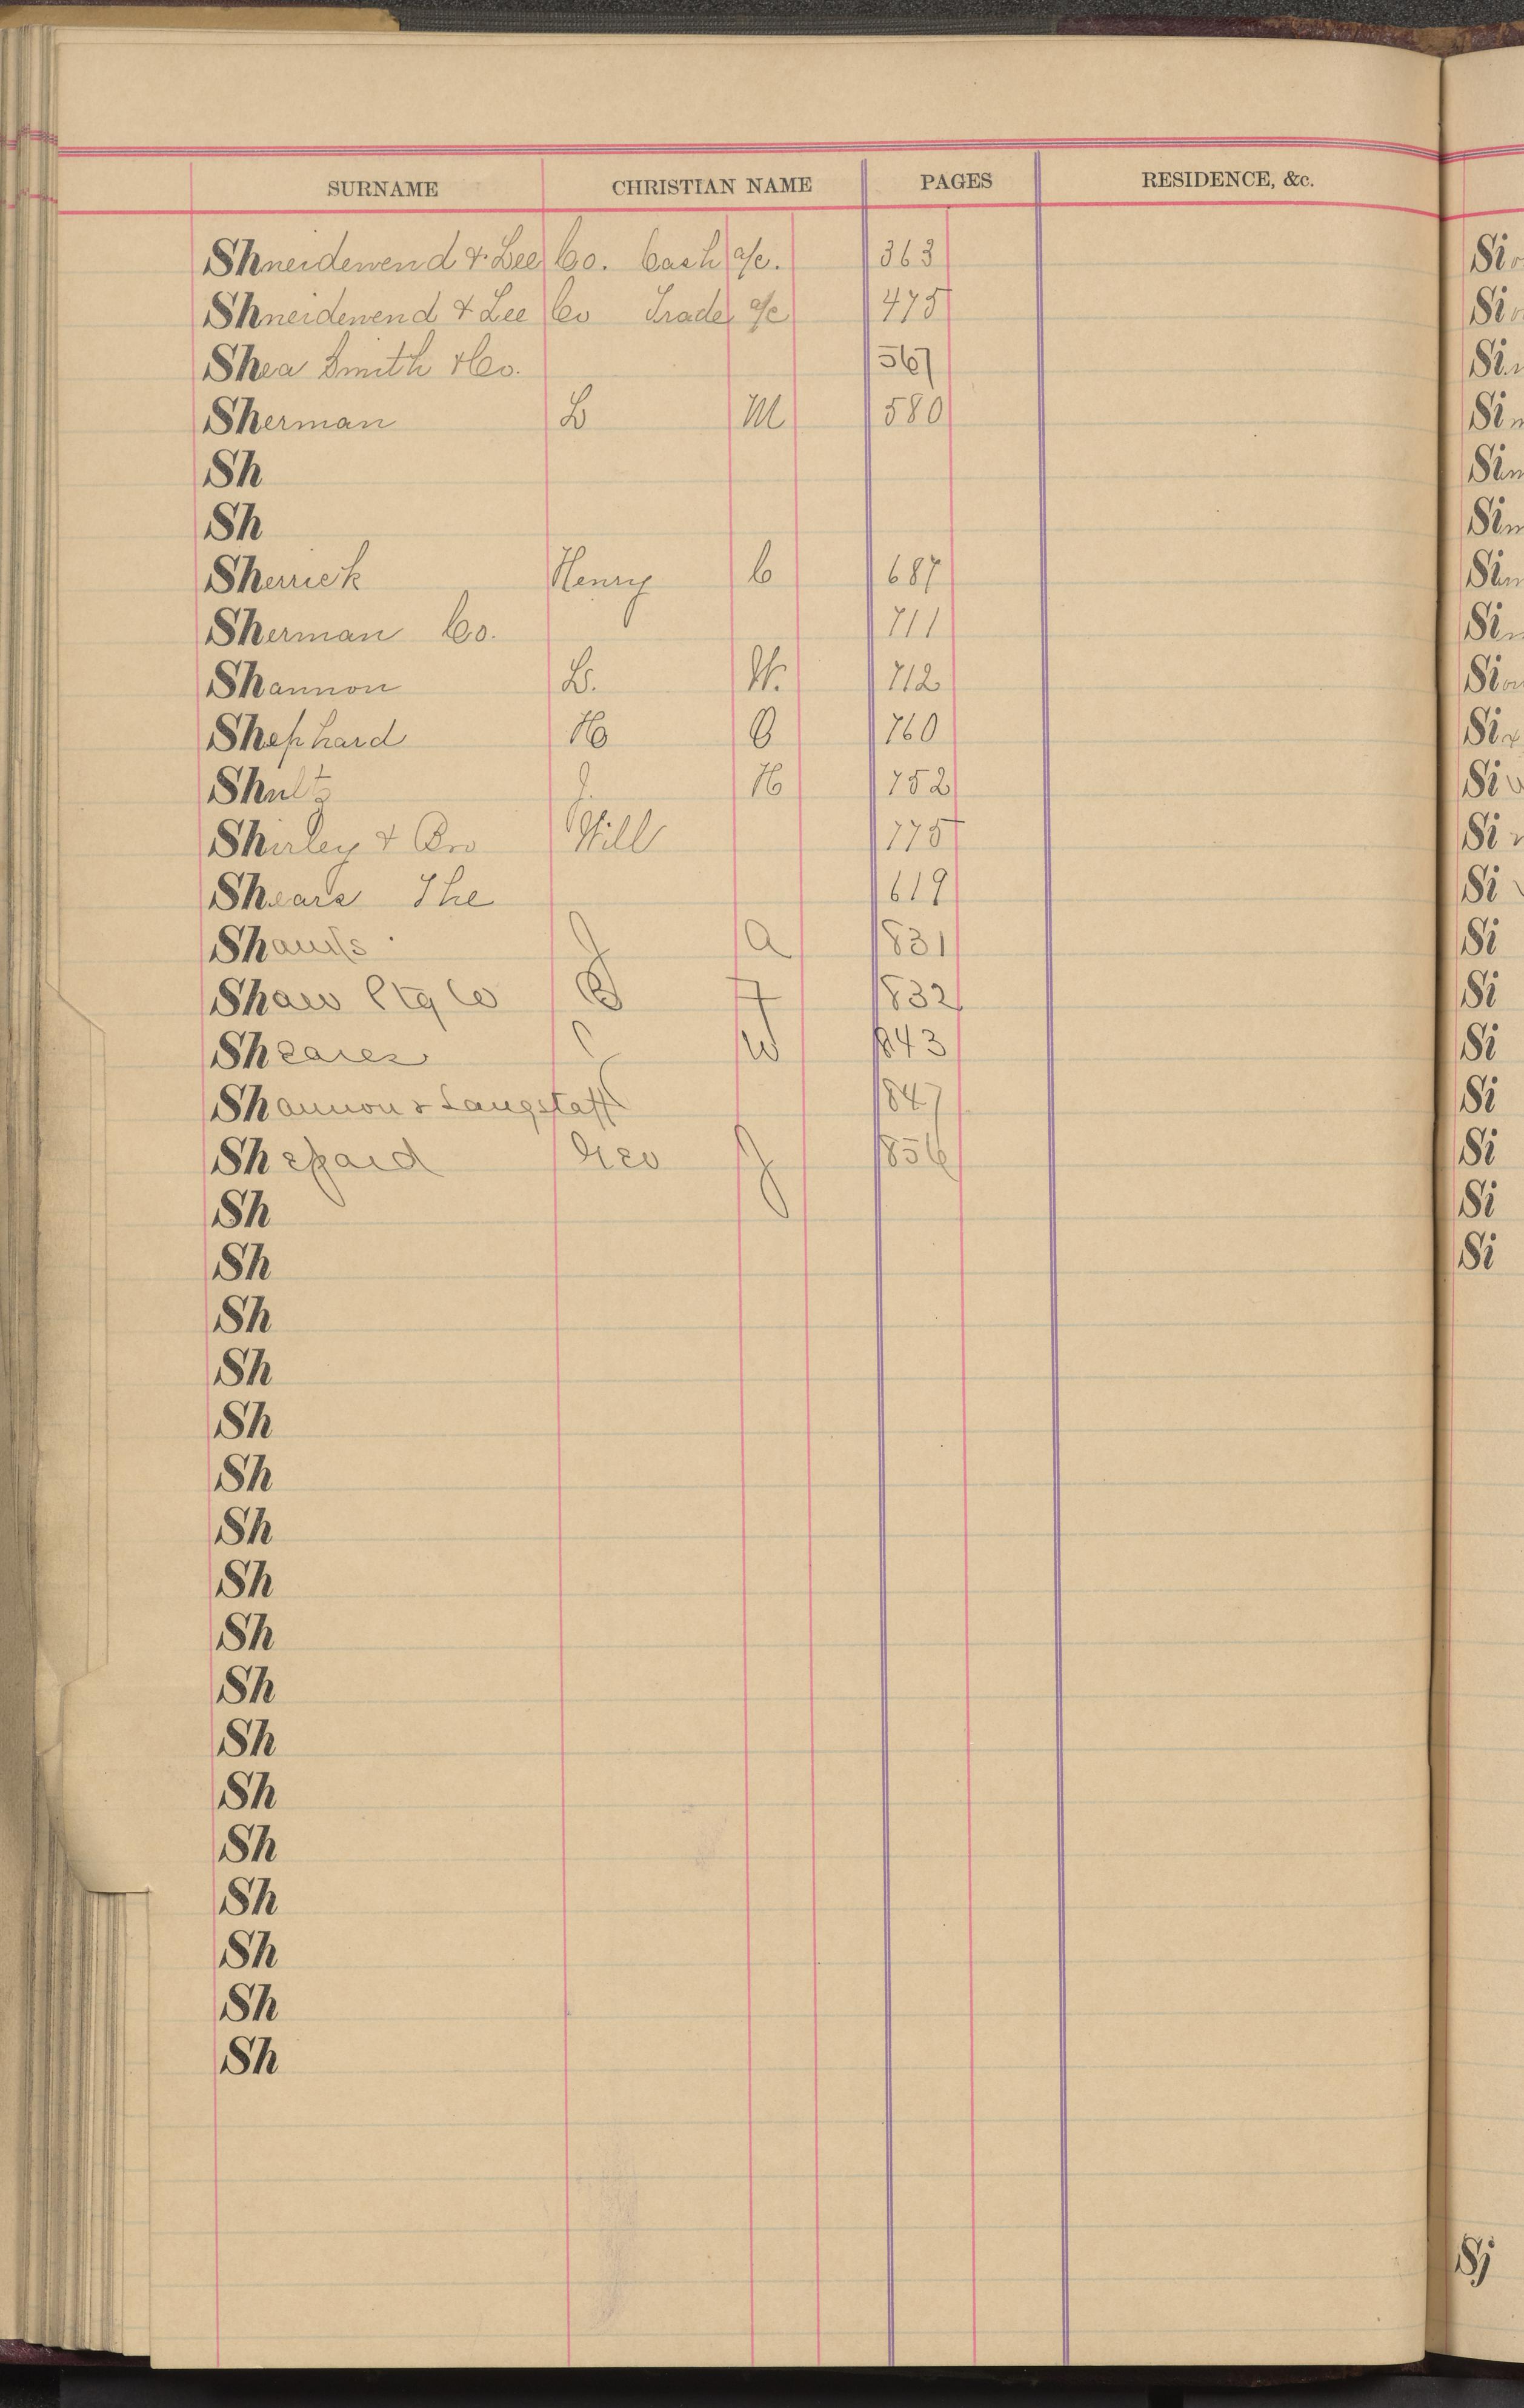 SURNAME CHRISTIAN NAME PAGES RESIDENCE, &c.
Shneidewend & Lee Co. Cash a/c. 363
Shneidewend & Lee Co Trade a/c 475
Shea Smith & Co. 567
Sherman L M 580
Sh
Sh
Sherrick Henry C 687
Sherman Co. 711
Shannon L. W. 712
Shephard H O 760
Shultz J. H 752
Shirley & Bro Will 775
Shears The 619
J A 831
Shaw Ptg Co B F 832
Sheares C W 843
Shannon & Langstaff 847
Shepard Geo J 856
Sh
Sh
Sh
Sh
Sh
Sh
Sh
Sh
Sh
Sh
Sh
Sh
Sh
Sh
Sh
Sh
Sh
Si
Si
Si
Si
Si
Si
Si
Si
Si
Si
Si
Si
Si
Si
Si
Si
Si
Si
Si
Si
Sj